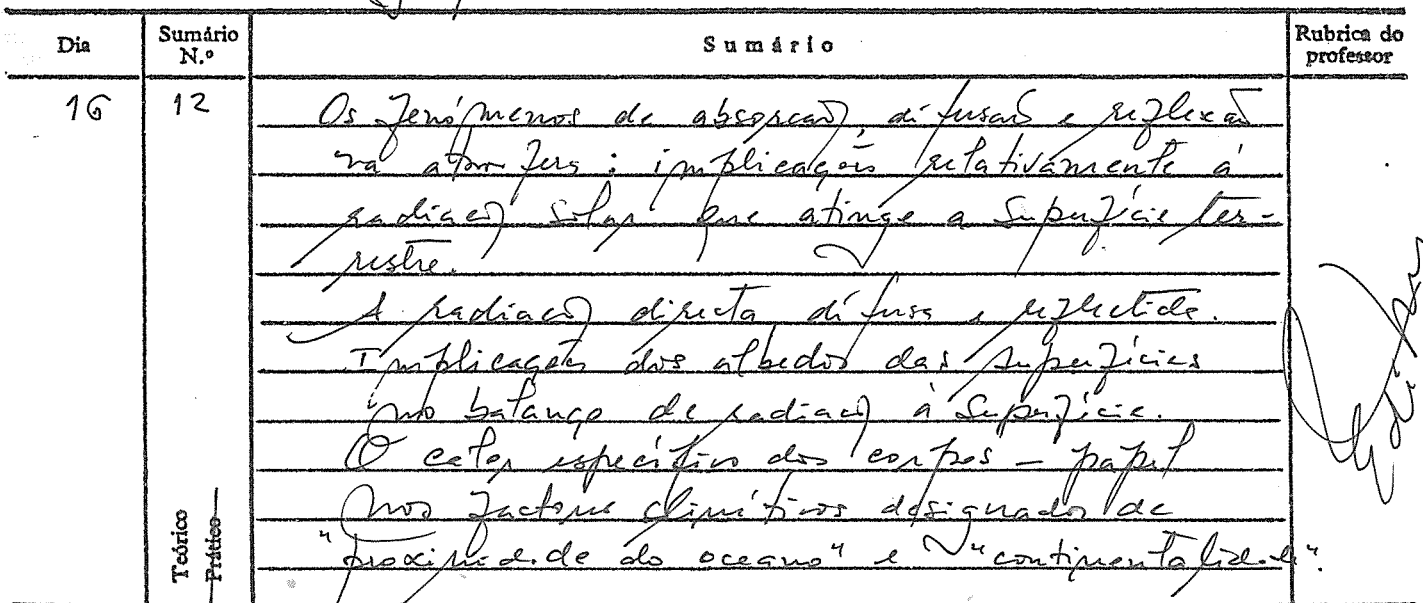 Dia Sumário N.º Sumário Rubrica do professor
16 12 Os fenómenos de absorção, difusão e reflexão
na atmosfera: implicações relativamente à
radiação solar que atinge a superfície ter-
restre.
A radiação directa difusa e reflectida.
Implicações dos albedos das superfícies
no balanço de radiação à superfície.
O calor específico dos corpos – papel
nos factores climáticos designados de
"proximidade do oceano" e "continentalidade".
Teórico
Prático